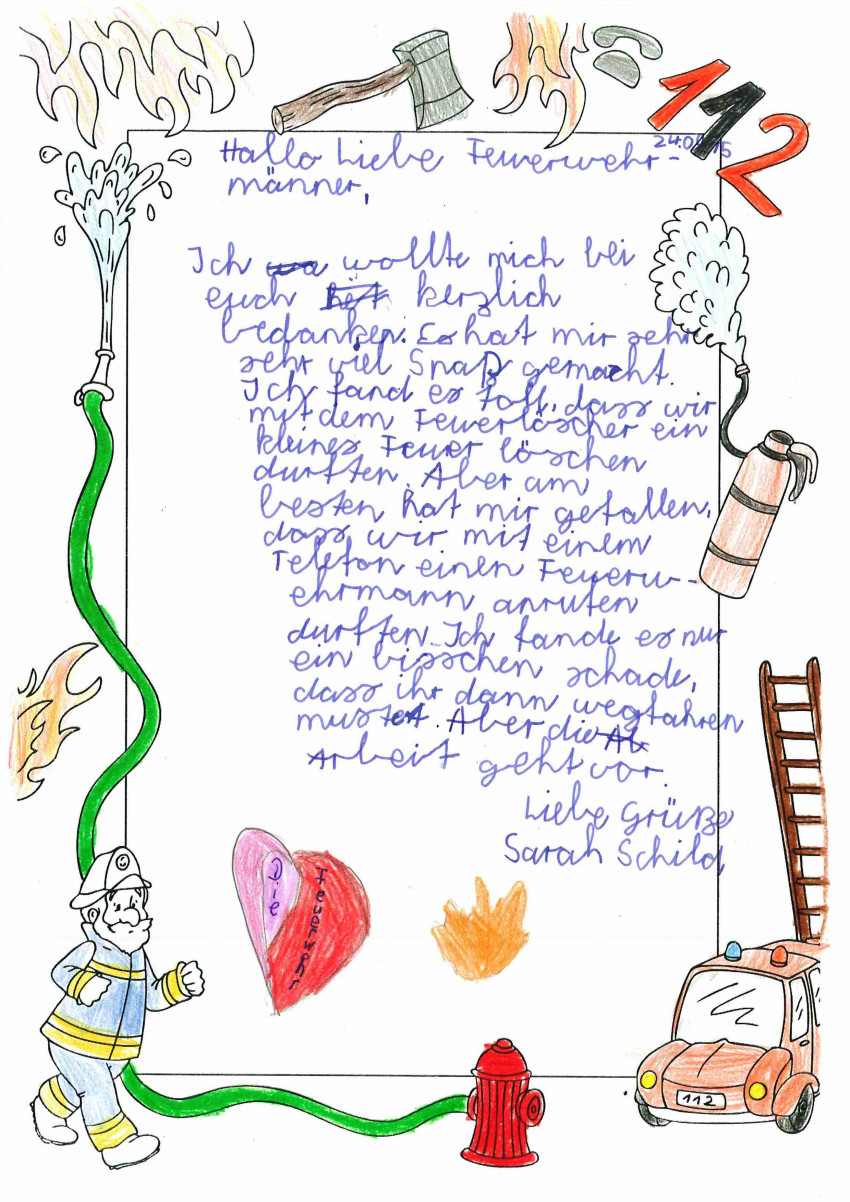 112
24.0 15
Hallo Liebe Feuerwehr-
männer,
Ich wollte mich bei
euch herzlich
bedanken. Es hat mir sehr
sehr viel Spaß gemacht.
Ich fand es toll, dass wir
mit dem Feuerlöscher ein
kleines Feuer löschen
durften. Aber am
besten hat mir gefallen,
dass wir mit einem
Telefon einen Feuerw-
ehrmann anrufen
durften. Ich fande es nur
ein bisschen schade,
dass ihr dann wegfahren
mustet. Aber die
Arbeit geht vor.
Liebe Grüße
Sarah Schild
Die
Feuerwehr
112